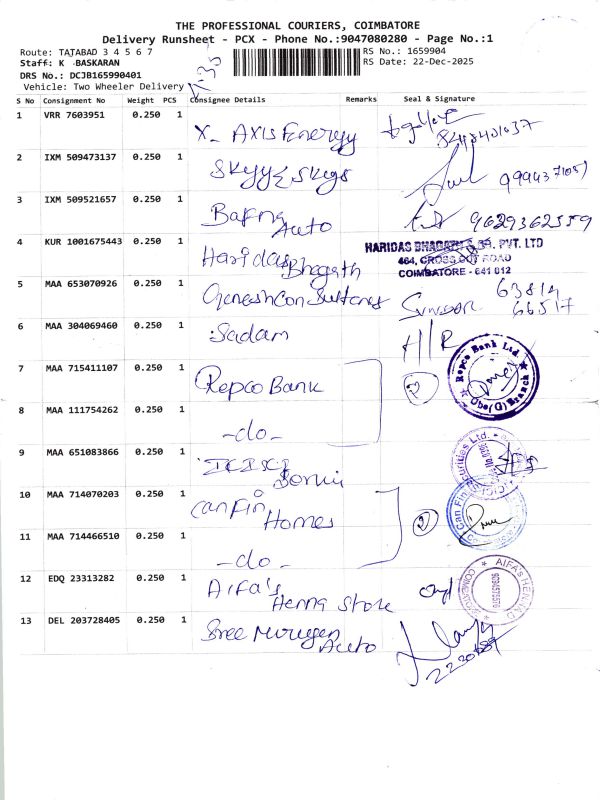 THE PROFESSIONAL COURIERS, COIMBATORE
Delivery Runsheet - PCX - Phone No.:9047080280 - Page No.:1
Route: TATABAD 3 4 5 6 7
RS No.: 1659904
Staff: K BASKARAN
RS Date: 22-Dec-2025
DRS No.: DCJB165990401
Vehicle: Two Wheeler Delivery
S No Consignment No Weight PCS Consignee Details Remarks Seal & Signature
1 VRR 7603951 0.250 1
X- AXIS Energy
2 IXM 509473137 0.250 1
3 IXM 509521657 0.250 1
Auto 9629362559
4 KUR 1001675443 0.250 1
Haridas Bhagath
HARIDAS BHAGATH & BR. PVT. LTD
464, CROSS CUT ROAD
COIMBATORE - 641 012
5 MAA 653070926 0.250 1
Ganesh Consultancy
63814
66517
6 MAA 304069460 0.250 1
Sadam H/R
7 MAA 715411107 0.250 1
Repco Bank (2) Repco Bank Ltd.
Branch
8 MAA 111754262 0.250 1
-do-
9 MAA 651083866 0.250 1
10 MAA 714070203 0.250 1
Can Fin Homes (2) Can Fin
11 MAA 714466510 0.250 1
-do-
12 EDQ 23313282 0.250 1
Aifa's Henna Store
AIFA'S HENNA
COIMBATORE
13 DEL 203728405 0.250 1
Sree Murugan Auto